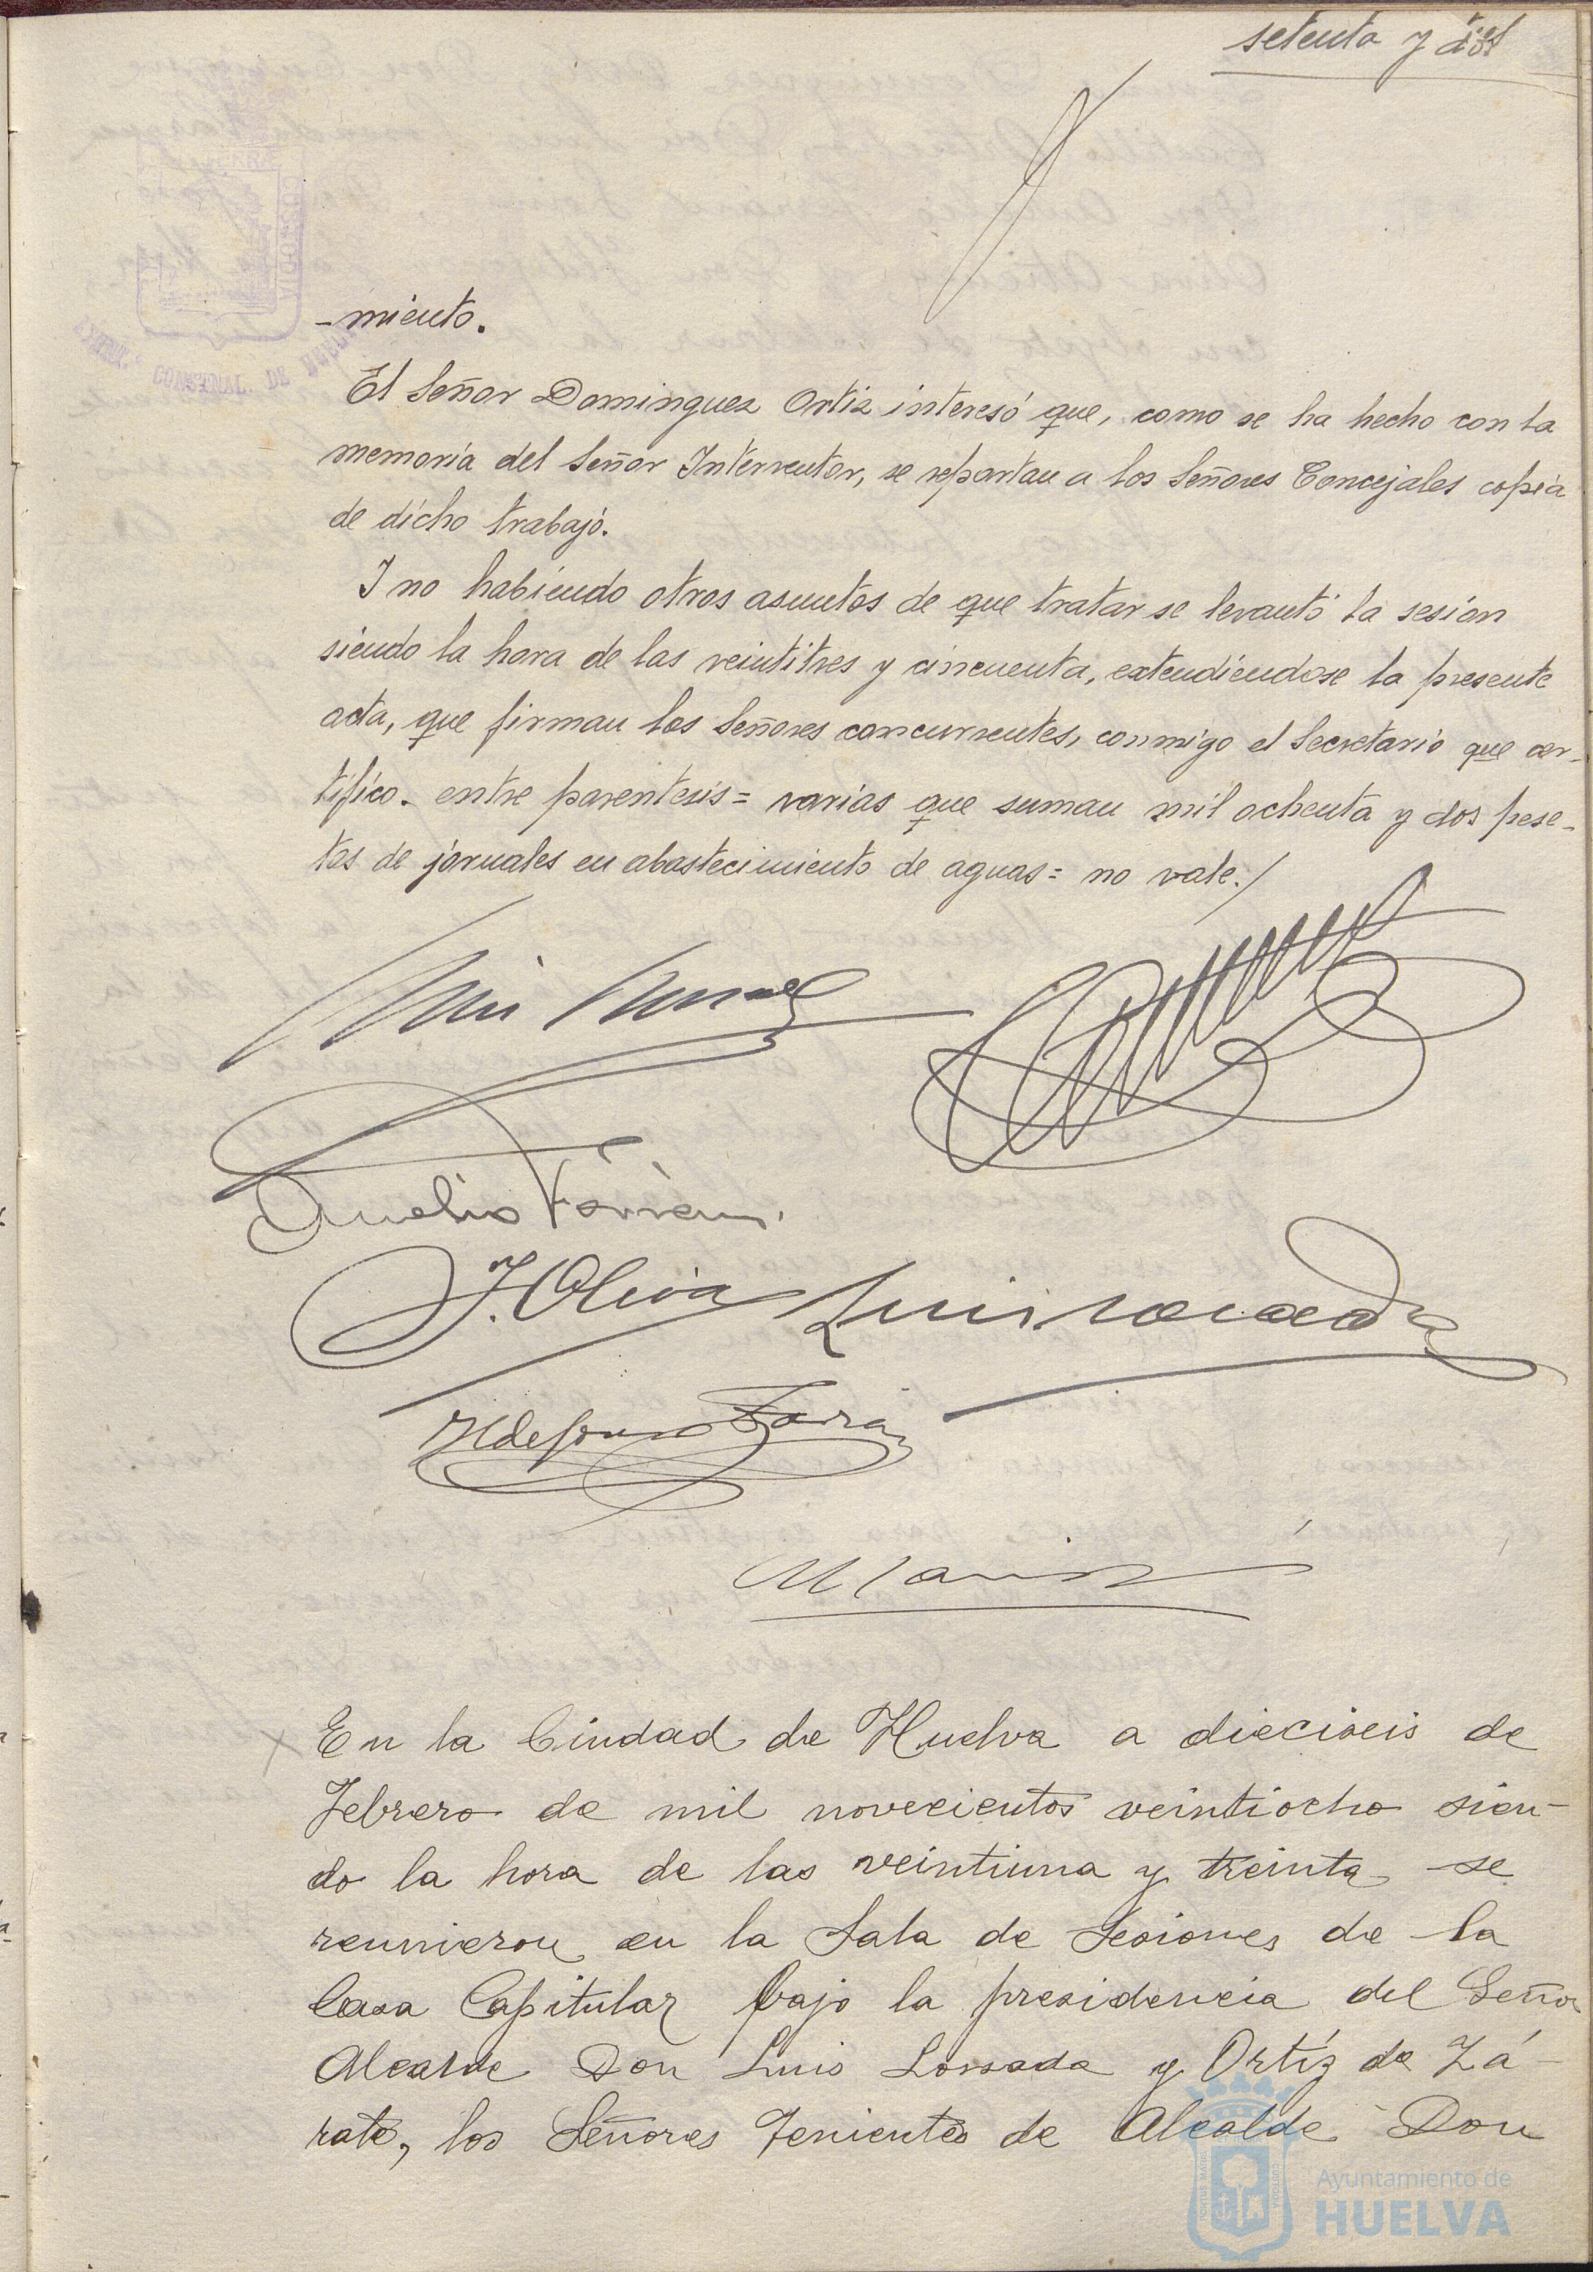 setenta y
-miento.
El Señor Dominguez Ortiz interesó que, como se ha hecho con la
memoria del Señor Interventor, se repartan a los Señores Concejales copia
de dicho trabajo.
Y no habiendo otros asuntos de que tratar se levantó la sesion
siendo la hora de las veintitres y cincuenta, extendiendose la presente
acta, que firman los Señores concurrentes, conmigo el Secretario que cer-
tifico. entre parentesis= varias que suman mil ochenta y dos pese-
tas de jornales en abastecimiento de aguas= no vale./
Aurelio
J. Oliva Luis
Ildefonso
En la Ciudad de Huelva a dieciseis de
Febrero de mil novecientos veintiocho sien-
do la hora de las veintiuna y treinta se
reunieron en la Sala de Sesiones de la
Casa Capitular bajo la presidencia del Señor
Alcalde Don Luis Lossada y Ortíz de Zá-
rate, los Señores Tenientes de Alcalde Don
Ayuntamiento de
HUELVA